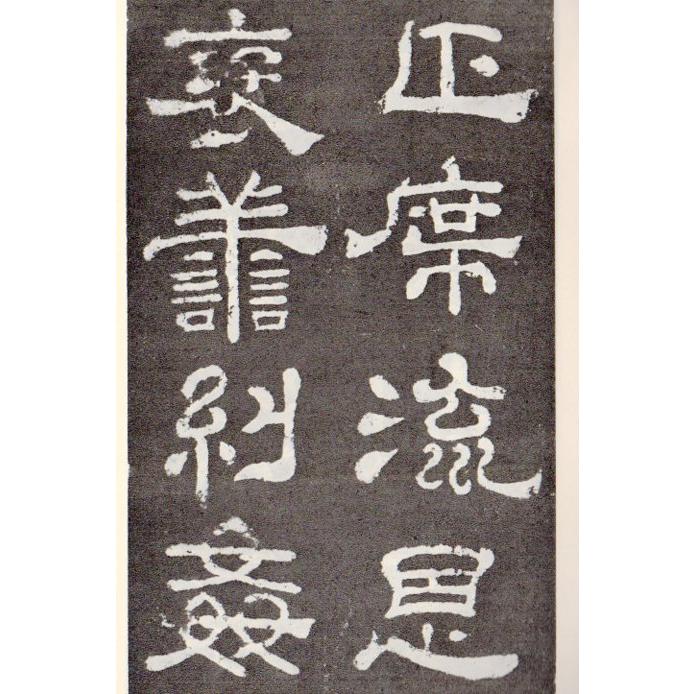 正席流恩
褒譱糾姦